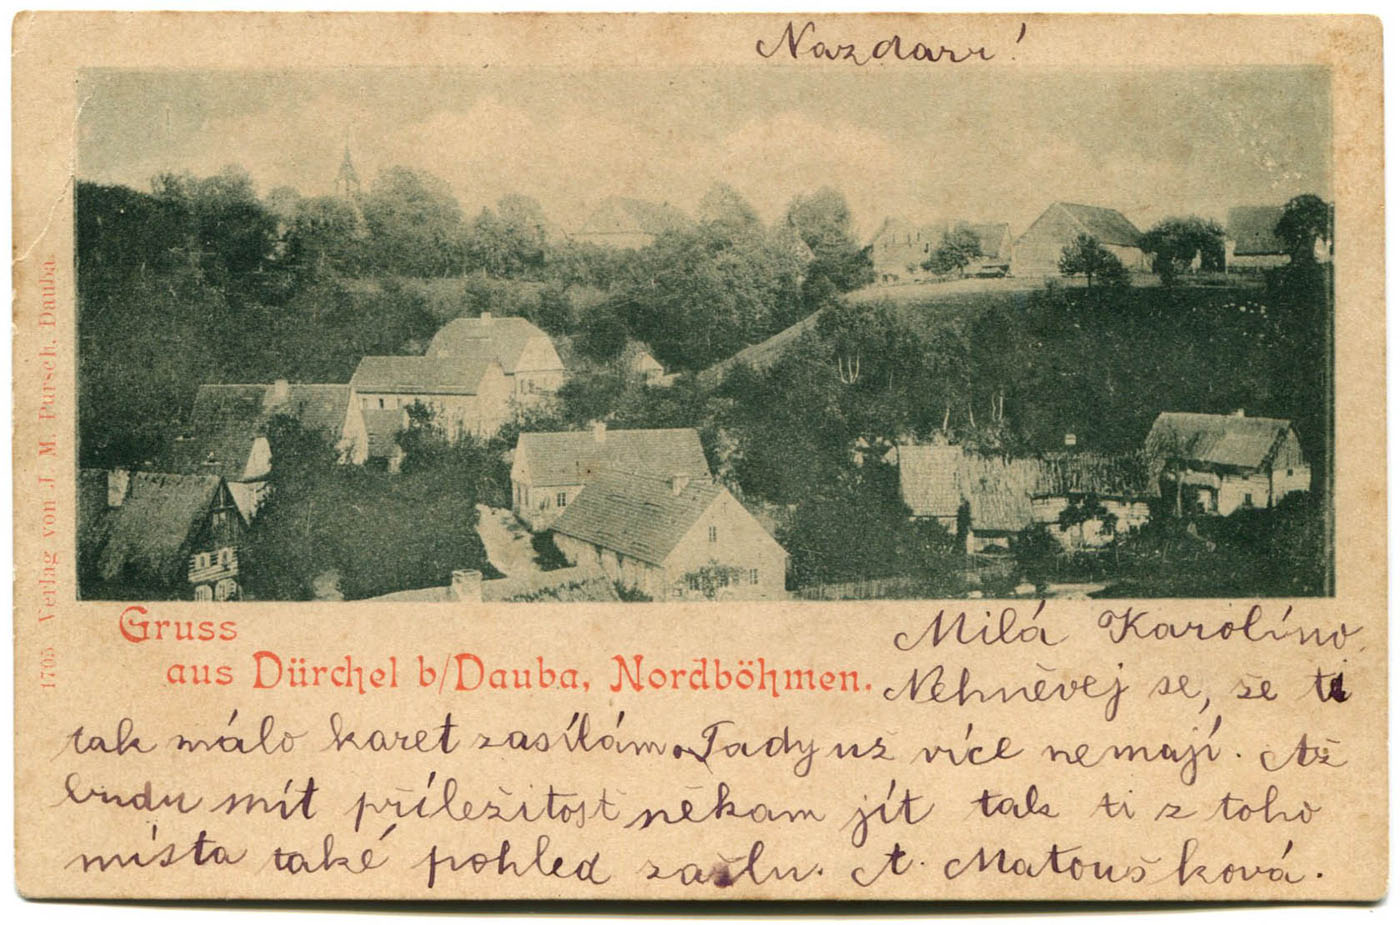 Nazdarr!
1705 Verlag von J. M. Pursch, Dauba.
Gruss
aus Dürchel b/Dauba, Nordböhmen.
Milá Karolíno,
Nehněvej se, že ti
tak málo karet zasílám. Tady už více nemají. Až
budu mít příležitost někam jít tak ti z toho
místa také pohled zašlu. A. Matoušková.